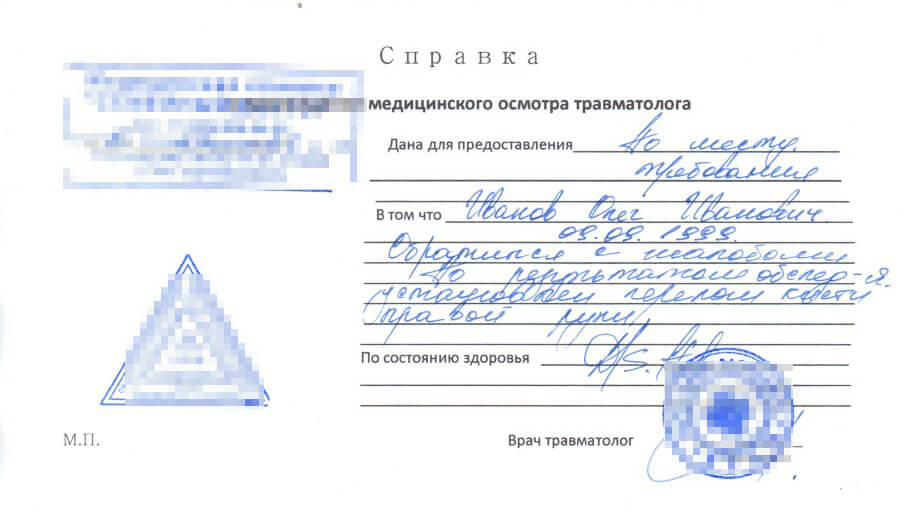 Справка
медицинского осмотра травматолога
Дана для предоставления По месту
требования
В том что Иванов Олег Иванович.
09.09.1999.
Обратился с жалобами
По результатам обслед-я
установлен перелом кисти
правой руки
По состоянию здоровья
М.П.
Врач травматолог